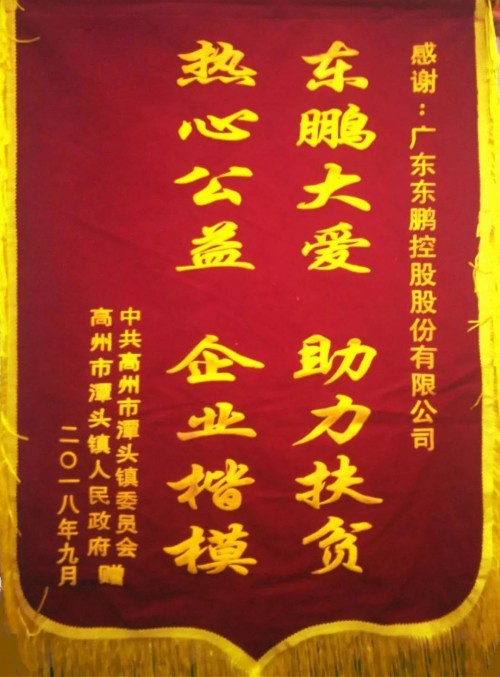 感谢：广东东鹏控股股份有限公司
东鹏大爱 助力扶贫
热心公益 企业楷模
中共高州市潭头镇委员会
高州市潭头镇人民政府 赠
二〇一八年九月